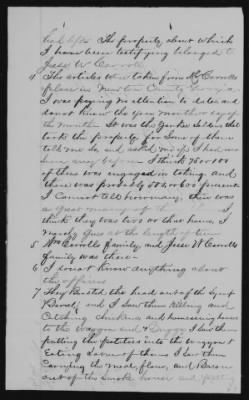 had left The property about which
I have been testifying belonged to
Jesse W Carroll
The articles were taken from Mr Carrolls
place in Newton County Georgia
I was paying no attention to dates and
do not know the year Month or day of
the Month. It was the Yankee soldiers that
took the property for Some of them
told me so, and asked me if I had ever
seen any before I think 75 or 100
of them was engaged in taking, and
there was probably 500 or 600 present
I cannot tell how many, there was
a great many of
think they was two or three hours, I
merely gus at the length of time
5 Mr Carrolls family, and Jesse W Carrolls
family was there
6 I do not know anything about
the officers
7 They busted the head out of the Syrup
Barrel, and I saw them Killing and
Catching chickens and
to the waggon and Buggy I saw them
putting the potatoes into the waggon &
Eating some of them I saw them
Carrying the meal, flour, and Bacon
out of the Smoke house and